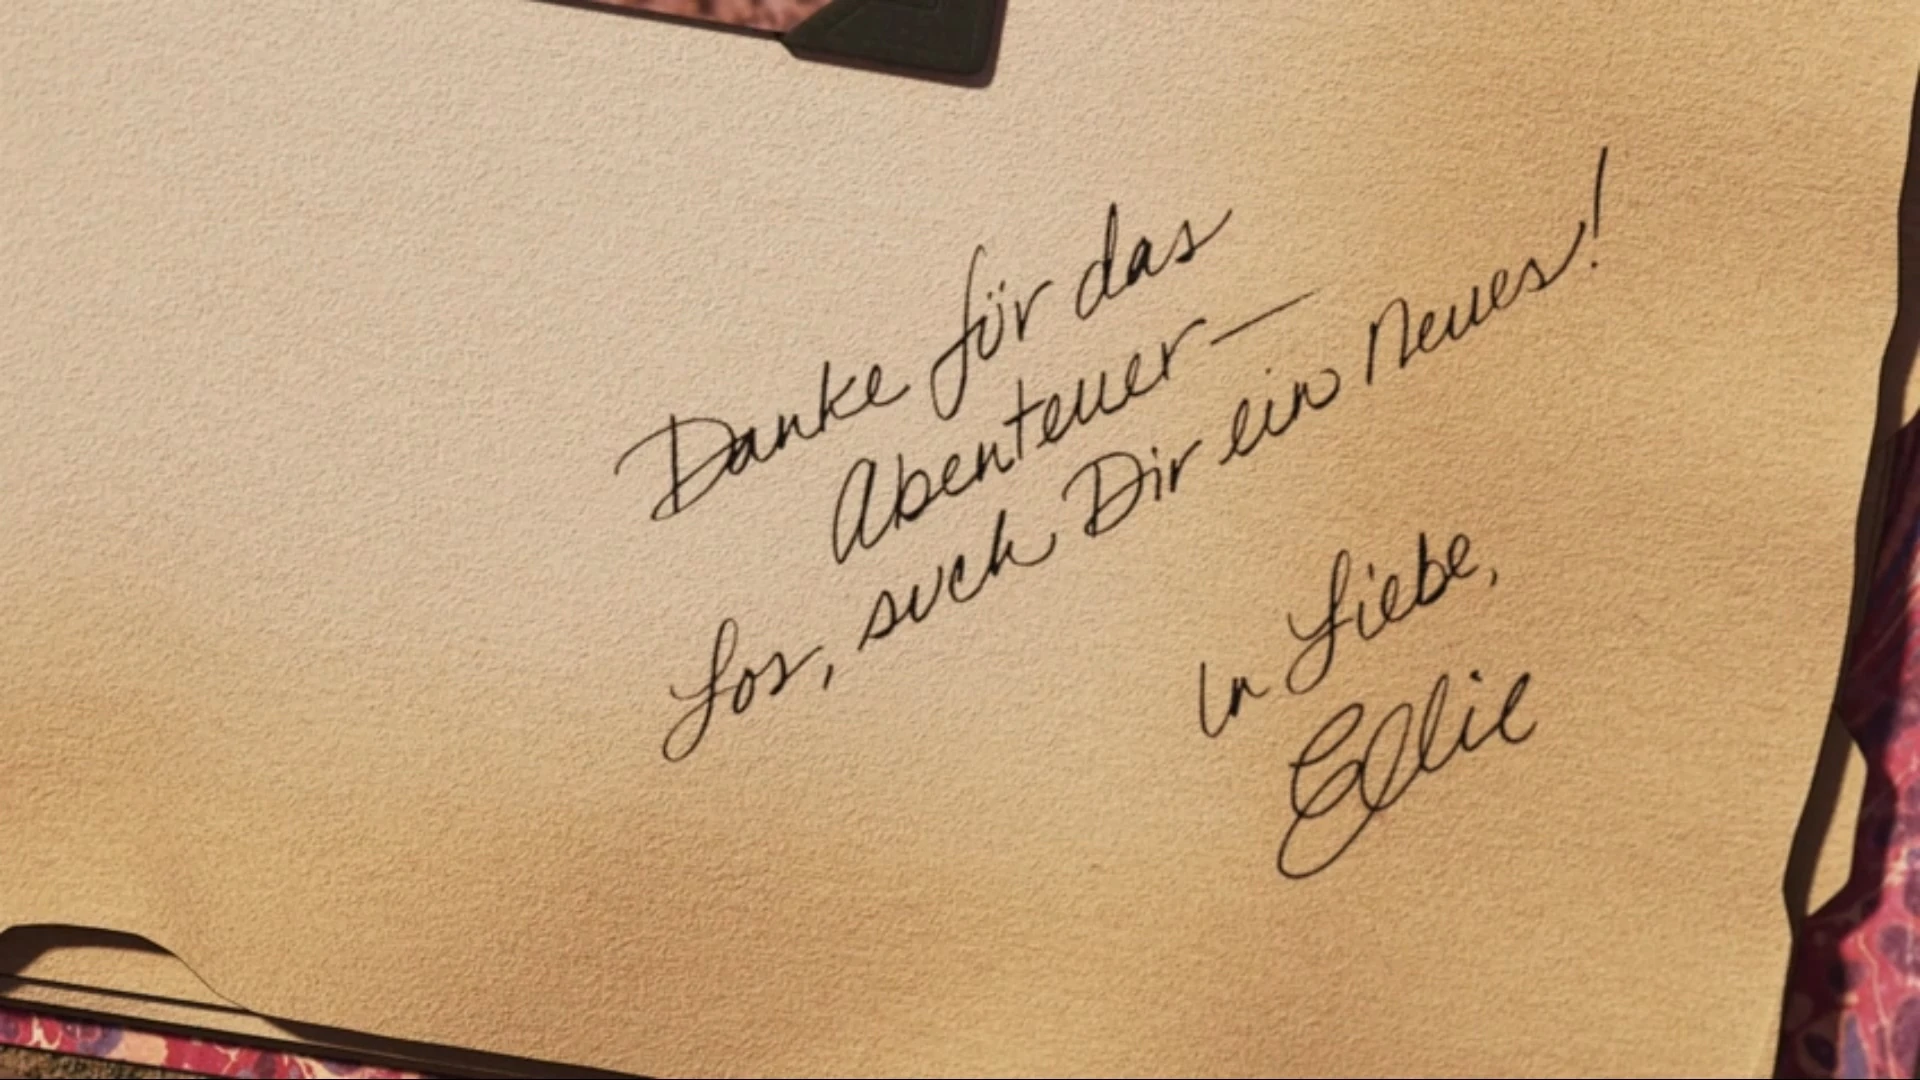 Danke für das
Abenteuer —
Los, such Dir ein Neues!
In Liebe,
Ellie